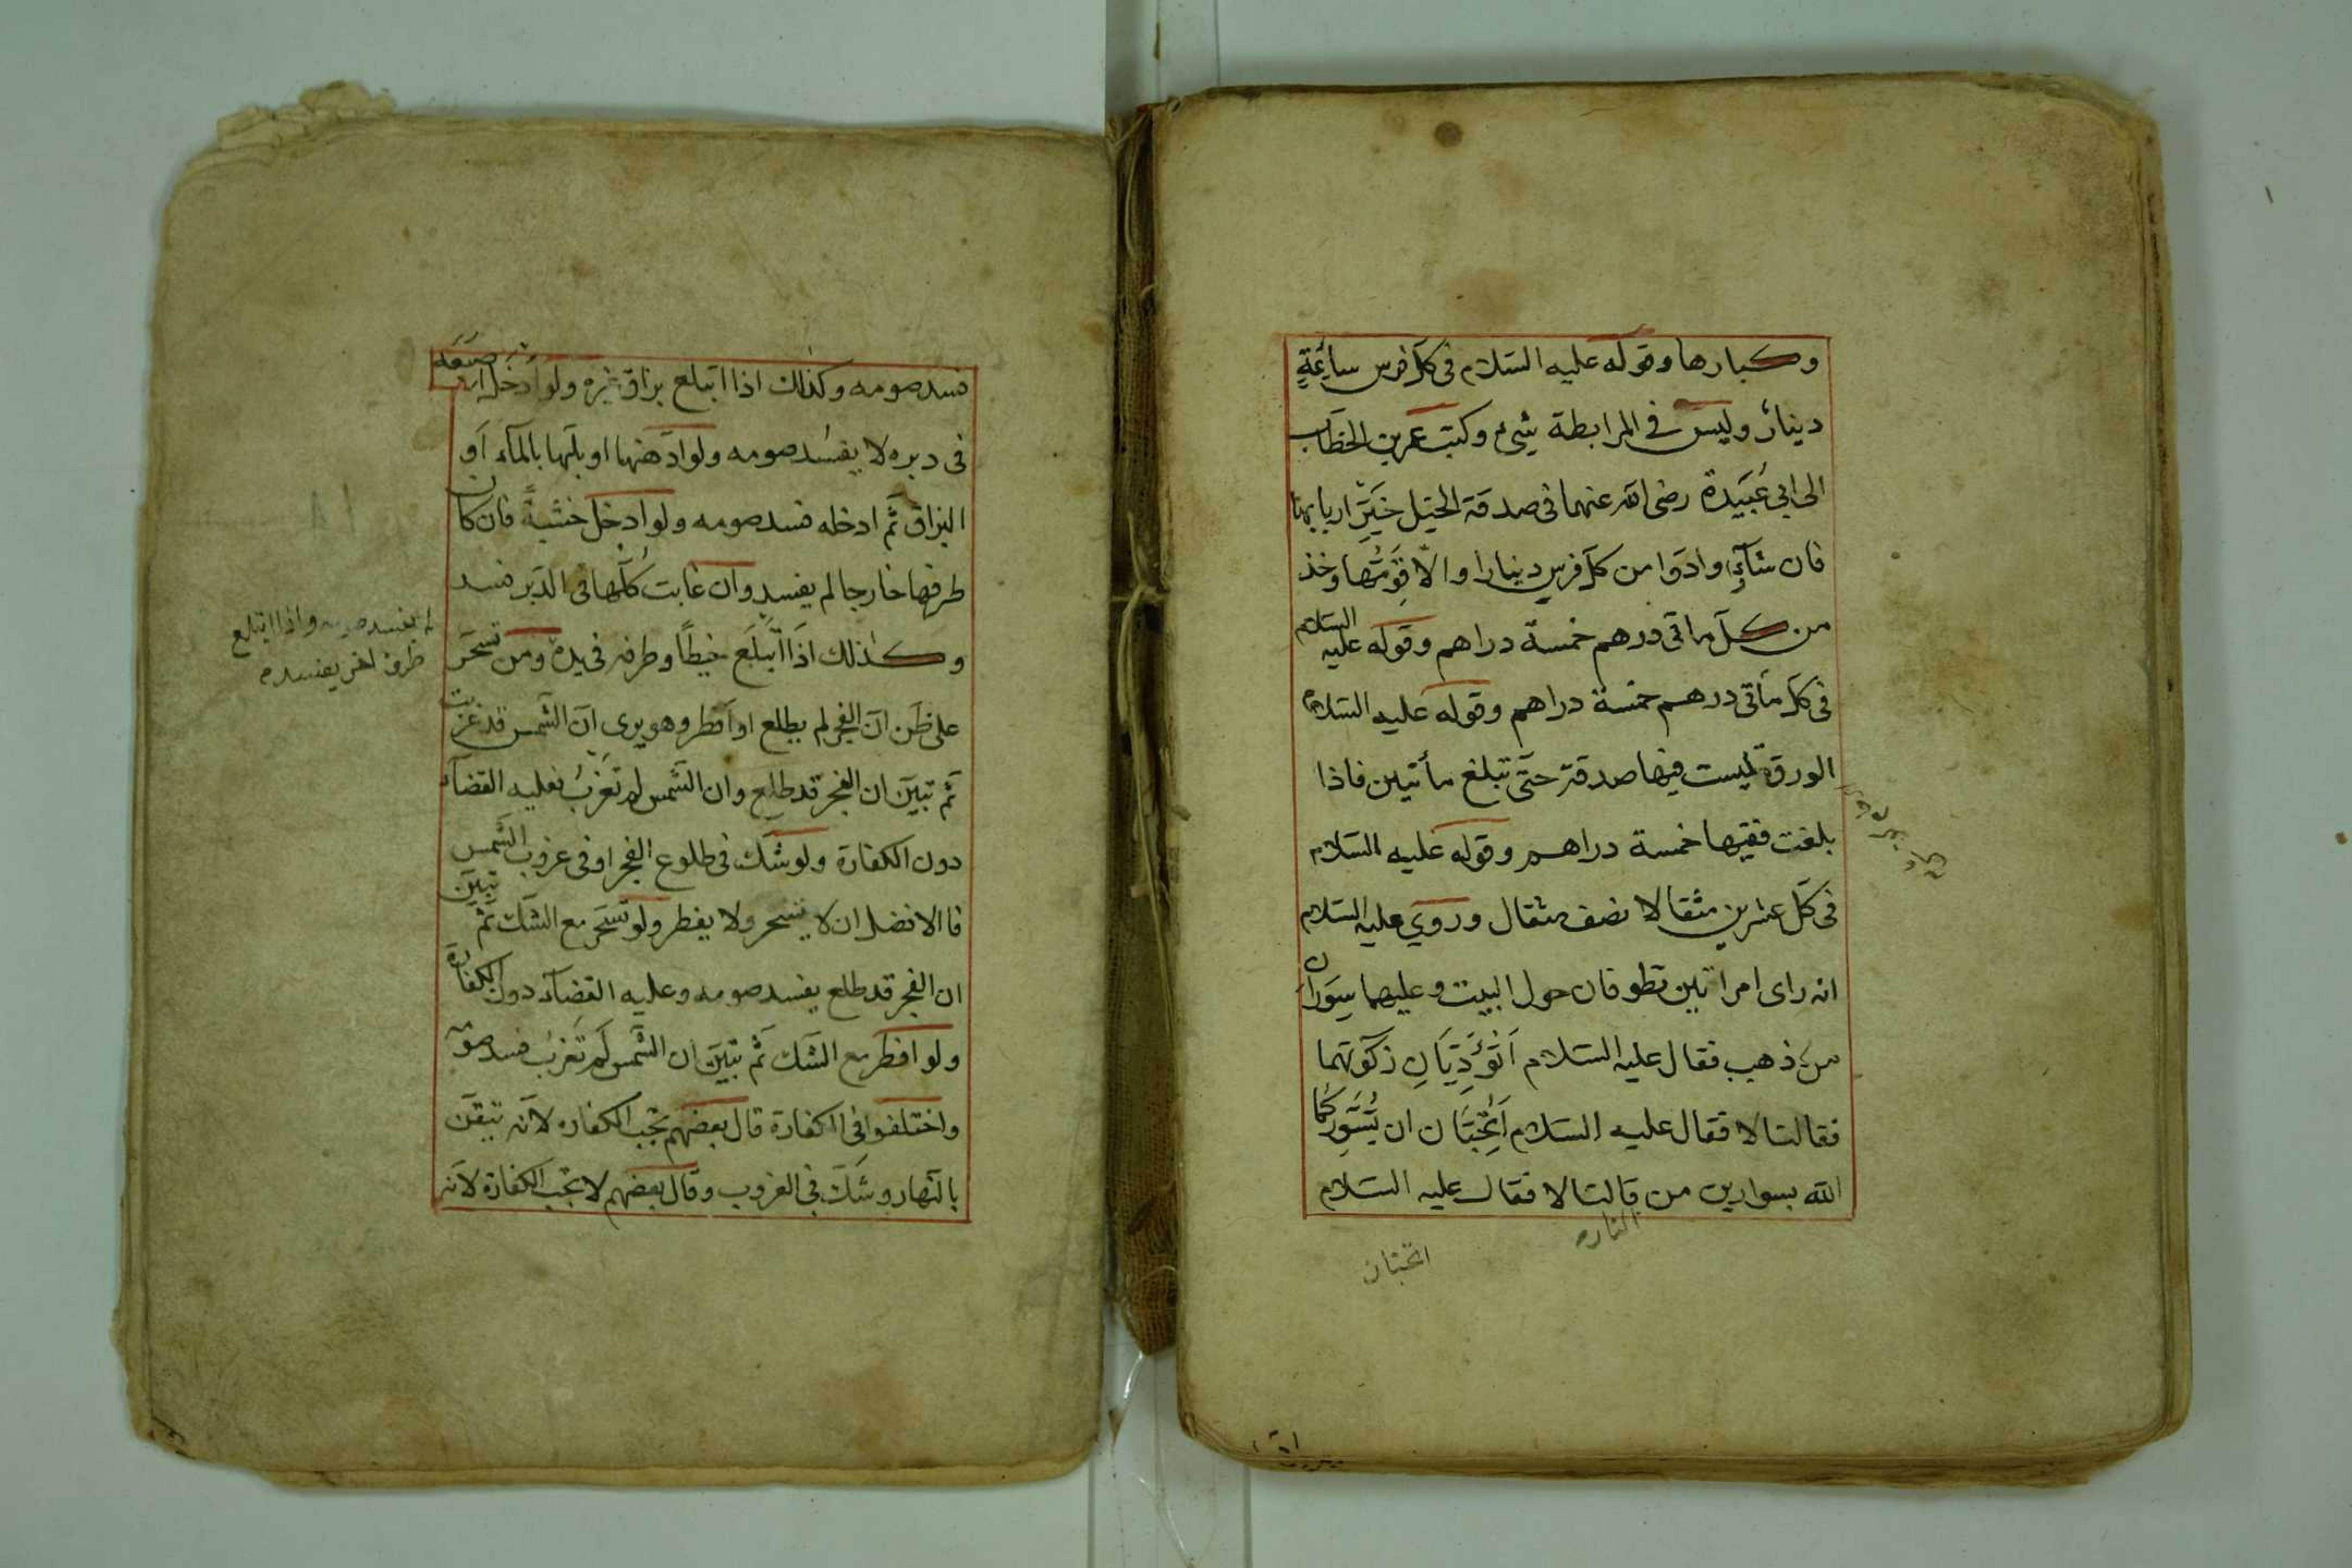 وكبارها وقوله عليه السلام فى كل فرس سائِمَةٍ
دينارٌ وليس في المرابطة شيءٌ وكتب عمر بن الخطاب
الى ابى عُبَيدة رضى الله عنهما فى صدقة الخيل خَيِّر اربابها
فان شآؤا ادَّوا من كل فرس دينارا والّا قوّمْتُها وخذ
من كل مأتى درهم خمسة دراهم وقوله عليه السلام
فى كل مأتى درهم خمسة دراهم وقوله عليه السلام
الورق ليست فيها صدقة حتّى تبلغ مأتين فاذا
بلغت ففيها خمسة دراهم وقوله عليه السلام
فى كل عشرين مثقالا نصف مثقال وروي عليه السلام
انه راى امراتين تطوفان حول البيت وعليهما سِوَارَان
من ذهب فقال عليه السلام اَتُؤَدِّيَانِ زكوتهما
فقالتا لا فقال عليه السلام اَتُحِبَّان ان يُسَوِّرَكُما
الله بسوارين من قالتا لا فقال عليه السلام
النار
اتحبان
فسد صومه وكذلك اذا ابتلع بزاق غيره ولو أدخل اصبعه
فى دبره لا يفسد صومه ولو ادهنها او بلّها بالمآء أو
البزاق ثم ادخله فسد صومه ولو ادخل خشبةً فان كان
طرفها خارجا لم يفسد وان غابت كُلّها فى الدبر فسد
وكذلك اذا ابتلَع خيطًا وطرفه فى يده ومن تسحّر
على ظن انّ الفجر لم يطلع او أفطر وهو يرى انّ الشمس قد غربت
ثم تبيّن ان الفجر قد طلع وان الشّمس لم تَغرُب فعليه القضآء
دون الكفارة ولو شكّ فى طلوع الفجر او فى غروب الشّمس
فا الافضل ان لا يتسحر ولا يفطر ولو تسحّر مع الشك ثم تبيّن
ان الفجر قد طلع يفسد صومه وعليه القضآء دون الكفارة
ولو افطر مع الشك ثم تبيّن ان الشّمس لم تَغرُب فسد صومه
واختلفوا فى الكفارة قال بعضهم تجب الكفاره لانّه تيقّن
بالنّهار وشكّ فى الغروب وقال بعضهم لا تجب الكفارة لانه
لم يفسد صومه واذا ابتلع
طرف اخر يفسد